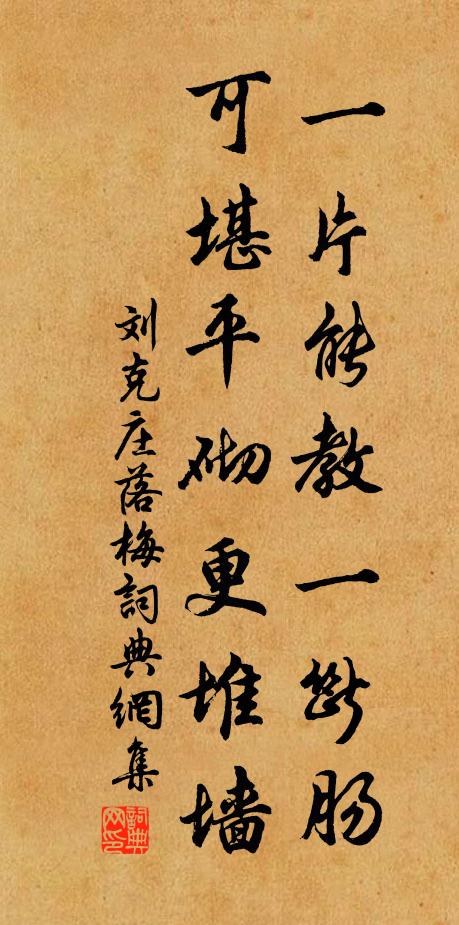 一片能教一断肠
可堪平砌更堆墙
刘克庄落梅詞典網集
詞典网印